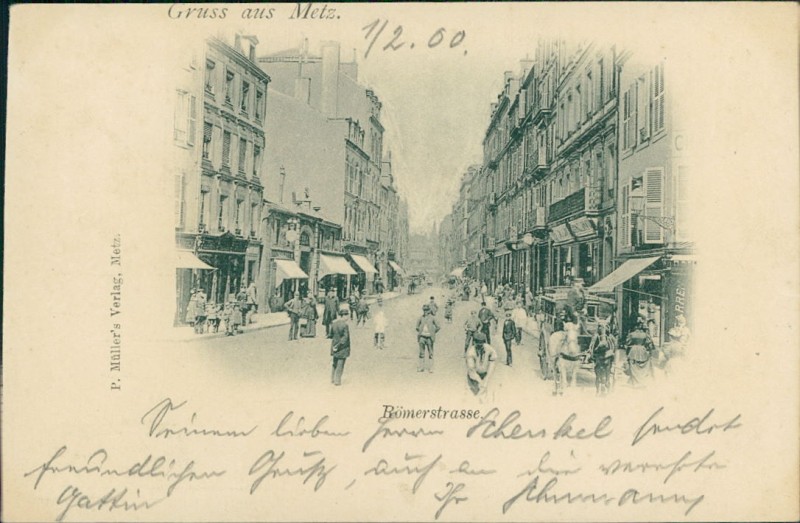 Gruss aus Metz.
1/2. 00.
P. Müller's Verlag, Metz.
Römerstrasse.
Seinem lieben Herrn Schenkel sendet
freundlichen Gruß, auch an die verehrte
Gattin Ihr